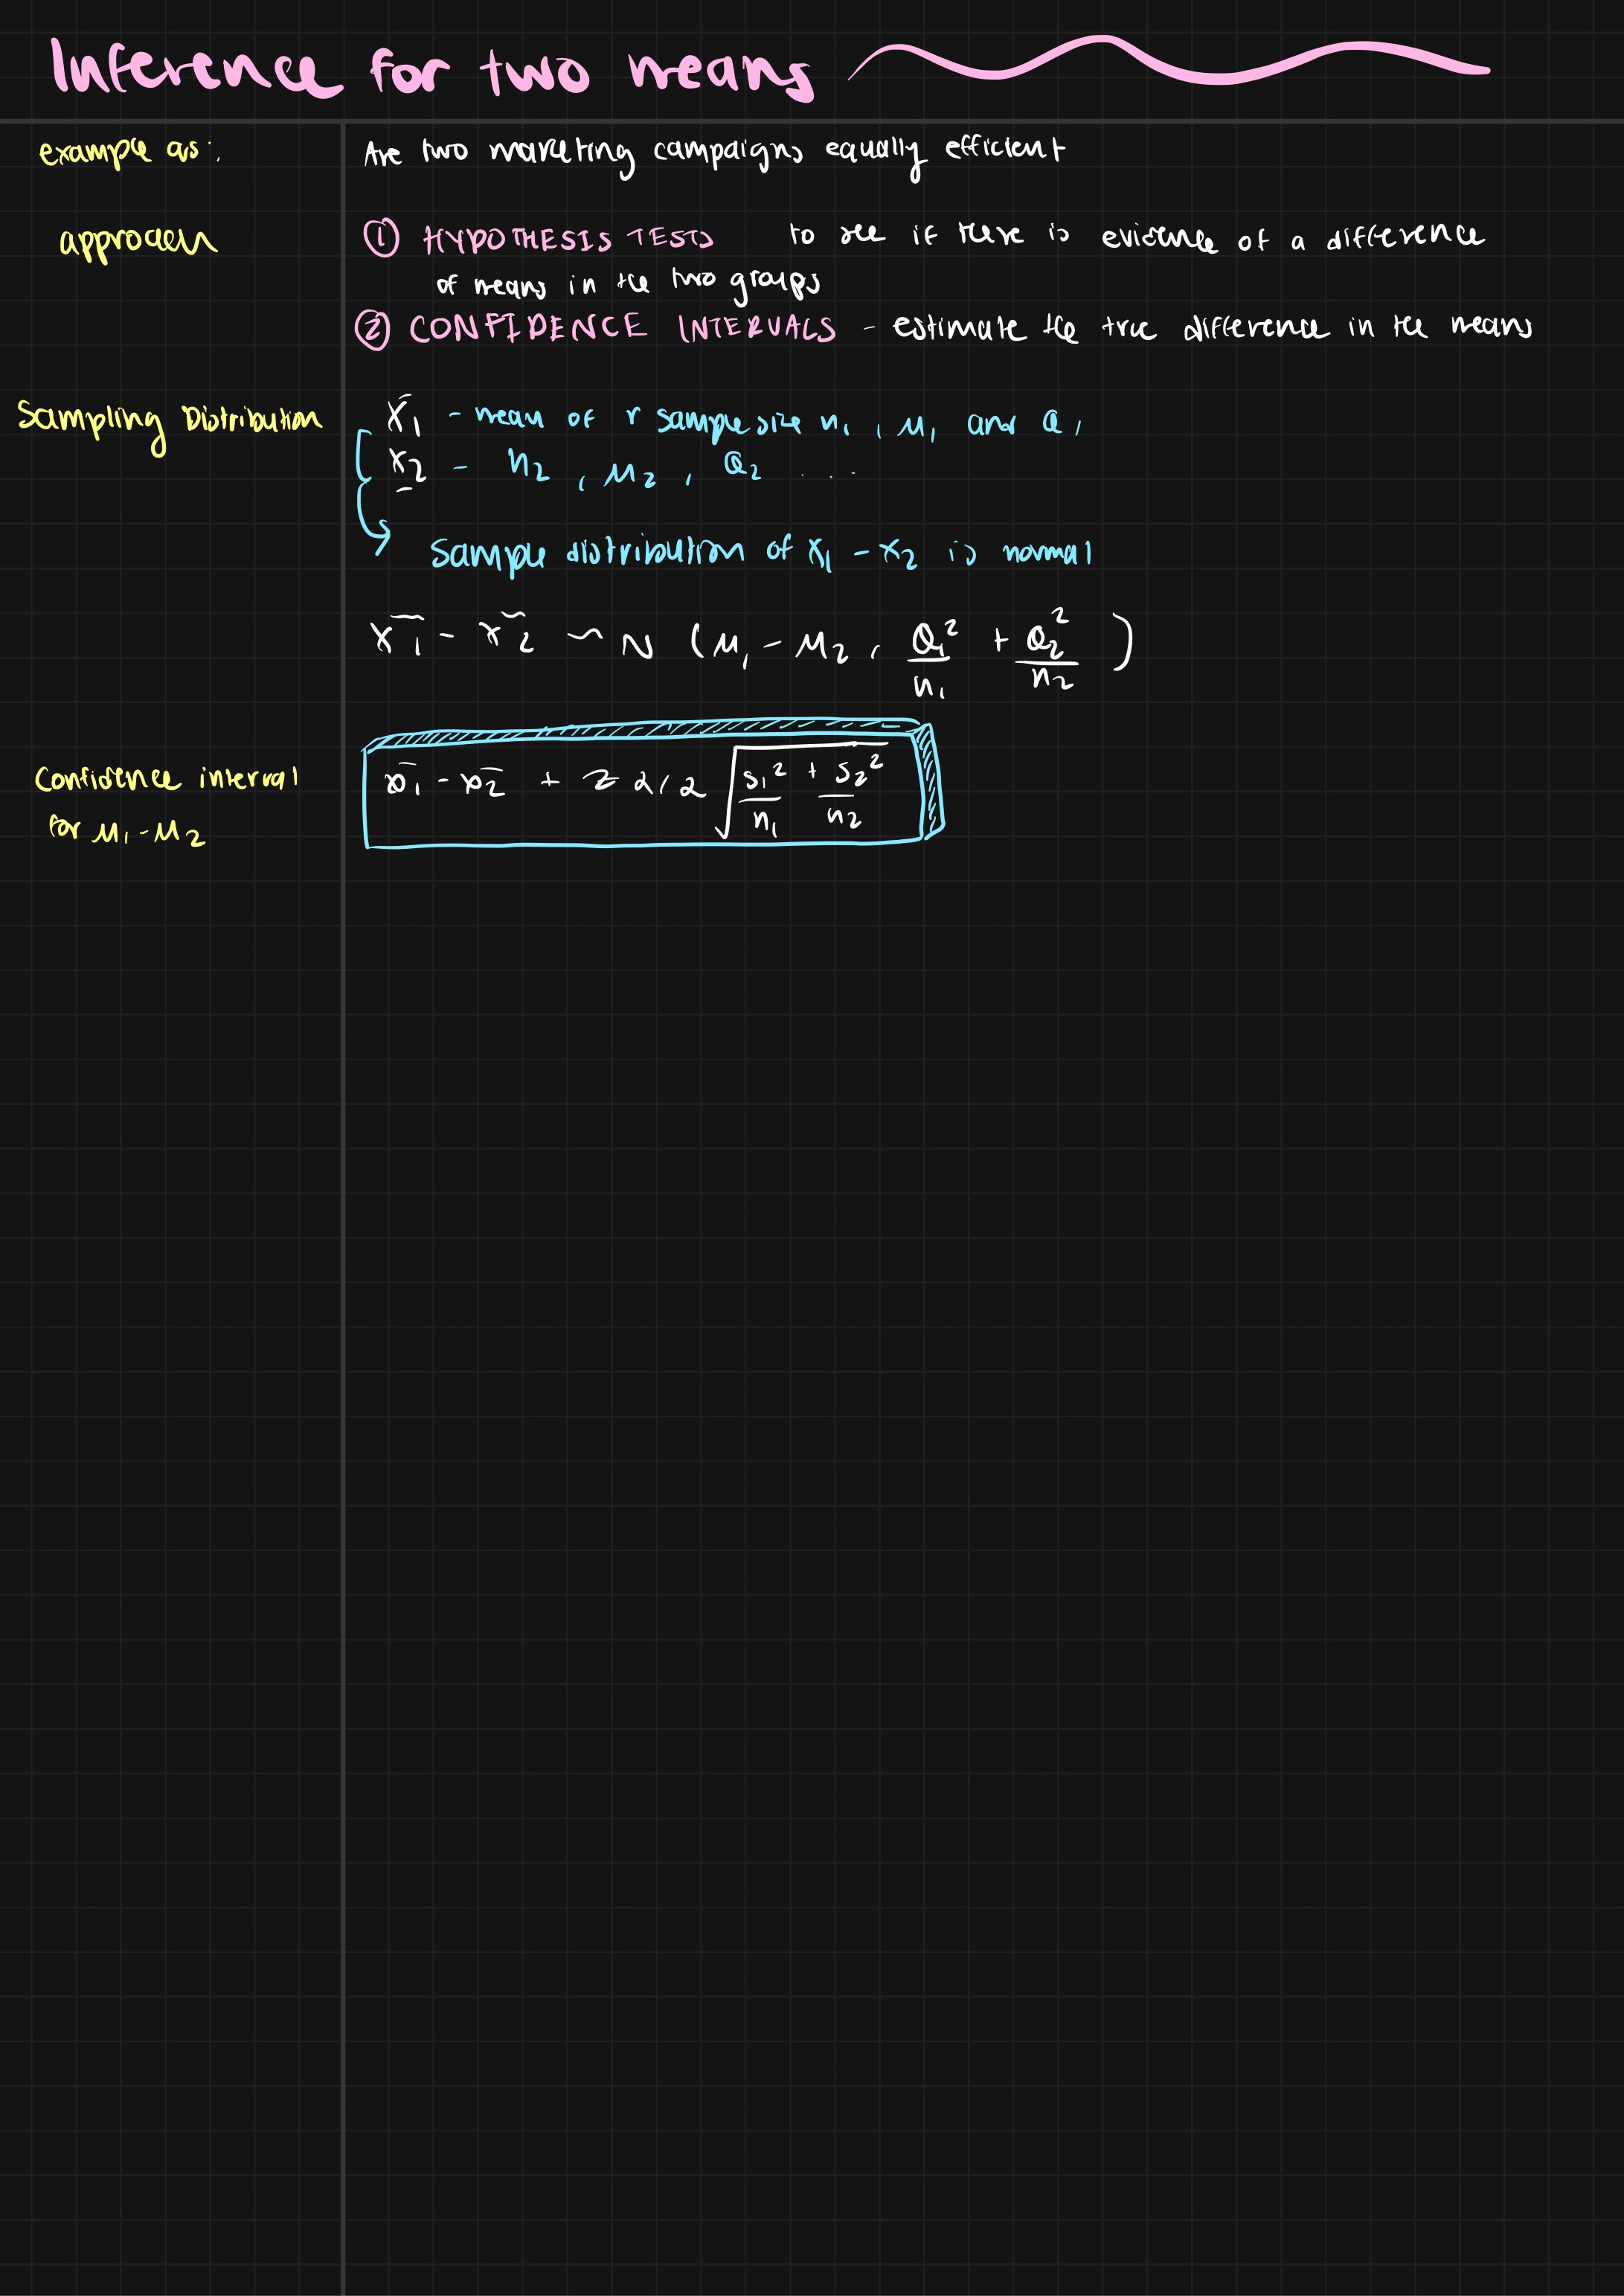 Inference for two means
example as:
Are two marketing campaigns equally efficient
approach
① HYPOTHESIS TESTS to see if there is evidence of a difference
of means in the two groups
② CONFIDENCE INTERVALS - estimate the true difference in the means
Sampling Distribution
x̄₁ - mean of r sample size n₁, μ₁ and σ₁
x₂ - n₂, μ₂, σ₂ ...
Sample distribution of x₁ - x₂ is normal
x̄₁ - x̄₂ ~ N (μ₁ - μ₂, σ₁²/n₁ + σ₂²/n₂)
Confidence interval
for μ₁-μ₂
x̄₁ - x̄₂ + z α/2 √(s₁²/n₁ + s₂²/n₂)